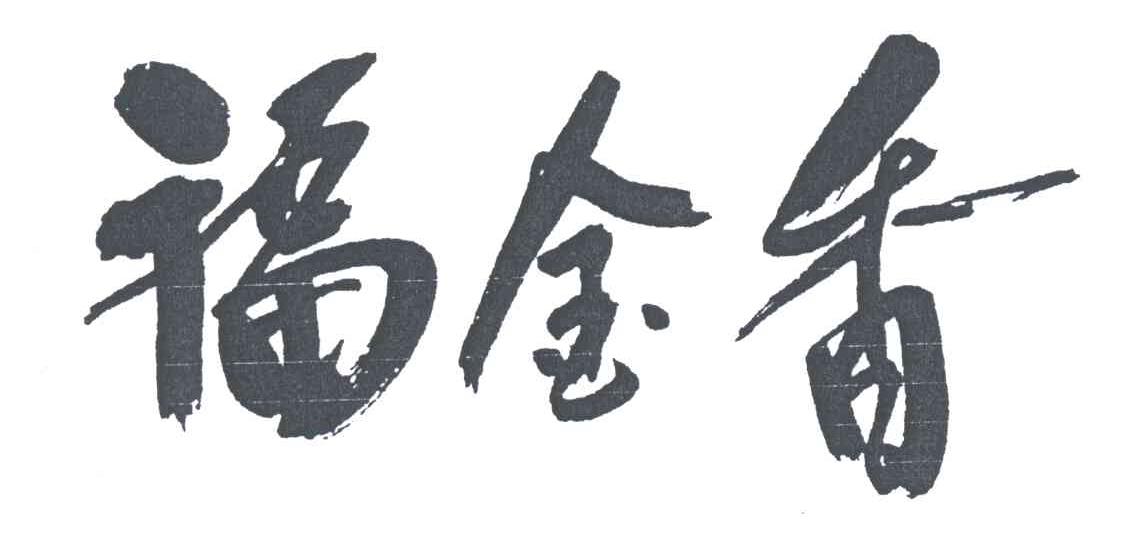 福金香